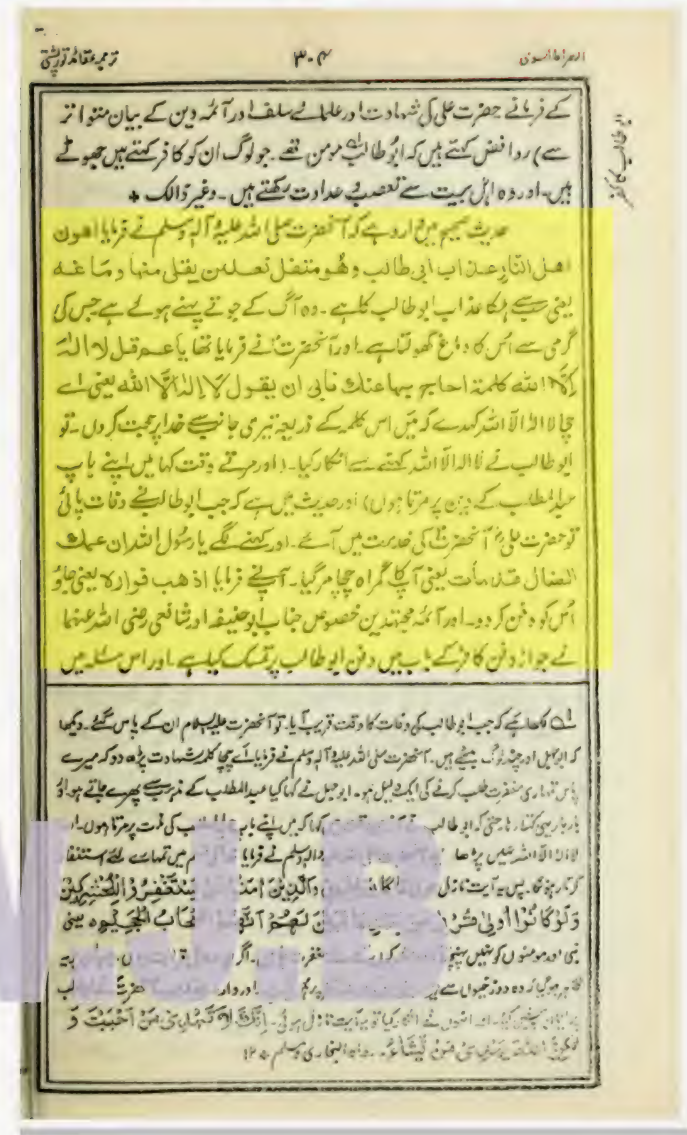 الصراط السوی ۳۰۴ ترجمہ عقائد تورپشتی
ابوطالب کا کفر
کے فرمانے حضرت علی کی شہادت اور علمائے سلف اور آئمہ دین کے بیان متواتر
سے) روافض کہتے ہیں کہ ابوطالب مومن تھے۔ جو لوگ ان کو کافر کہتے ہیں جھوٹے
ہیں۔ اور وہ اہل بیت سے تعصب و عداوت رکھتے ہیں۔ وغیر ذالک +
حدیث صحیح میں وارد ہے کہ آنحضرت صلی اللہ علیہ وآلہ وسلم نے فرمایا اھون
اھل النار عذاب ابی طالب وھو متنعل نعلین یغلی منھا دماغہ
یعنی سب سے ہلکا عذاب ابوطالب کا ہے۔ وہ آگ کے جوتے پہنے ہوئے ہے جس کی
گرمی سے اُس کا دماغ کھولتا ہے۔ اور آنحضرت نے فرمایا تھا یا عم قل لا الہ
الا اللہ کلمة احاج بھا عنك فابی ان یقول لا الہ الا اللہ یعنی اے
چچا لا الہ الا اللہ کہدے کہ میں اس کلمہ کے ذریعہ تیری جانب سے خدا پر حجت کروں۔ تو
ابوطالب نے لا الہ الا اللہ کہنے سے انکار کیا۔ (اور مرتے وقت کہا میں اپنے باپ
عبدالمطلب کے دین پر مرتا ہوں) اور حدیث میں ہے کہ جب ابوطالب نے وفات پائی
تو حضرت علی آنحضرت کی خدمت میں آئے۔ اور کہنے لگے یا رسول اللہ ان عمك
الضال قد مات یعنی آپ کا گمراہ چچا مر گیا۔ آپ نے فرمایا اذھب فوارہ یعنی جاؤ
اُس کو دفن کر دو۔ اور آئمہ مجتہدین خصوصاً جناب ابوحنیفہ اور شافعی رضی اللہ عنہما
نے جواز دفن کافر کے باب میں دفن ابوطالب پر تمسک کیا ہے۔ اور اس مسئلہ میں
لکھا ہے کہ جب ابوطالب کی وفات کا وقت قریب آیا۔ تو آنحضرت علیہ السلام ان کے پاس گئے۔ دیکھا
کہ ابوجہل اور چند لوگ بیٹھے ہیں۔ آنحضرت صلی اللہ علیہ وآلہ وسلم نے فرمایا اے چچا کلمہ شہادت پڑھ دو کہ میرے
پاس تمہاری مغفرت طلب کرنے کی ایک دلیل ہو۔ ابوجہل نے کہا کیا عبدالمطلب کے مذہب سے پھرے جاتے ہو اؤ
بار بار یہی کہتا رہا حتی کہ ابوطالب کہا کہ میں اپنے باپ کی ملت پر مرتا ہوں۔
لا الہ الا اللہ نہیں پڑھا وآلہ وسلم نے فرمایا میں تمہارے لئے استغفار
کرتا رہونگا۔ پس یہ آیت نازل وَالَّذِیْنَ اٰمَنُوْا یَسْتَغْفِرُوْا لِلْمُشْرِکِیْنَ
وَلَوْ کَانُوْا اُولِیْ قُرْبٰی لَهُمْ اَنَّهُمْ اَصْحَابُ الْجَحِیْمِ یعنی
نبی اور مومنوں کو نہیں اگر
ظاہر ہو گیا کہ وہ دوزخیوں سے
آیت نازل ہوئی۔ اِنَّكَ لَا تَهْدِیْ مَنْ اَحْبَبْتَ وَ
مَنْ یَّشَآءُ۔ رواہ البخاری ومسلم ۱۲